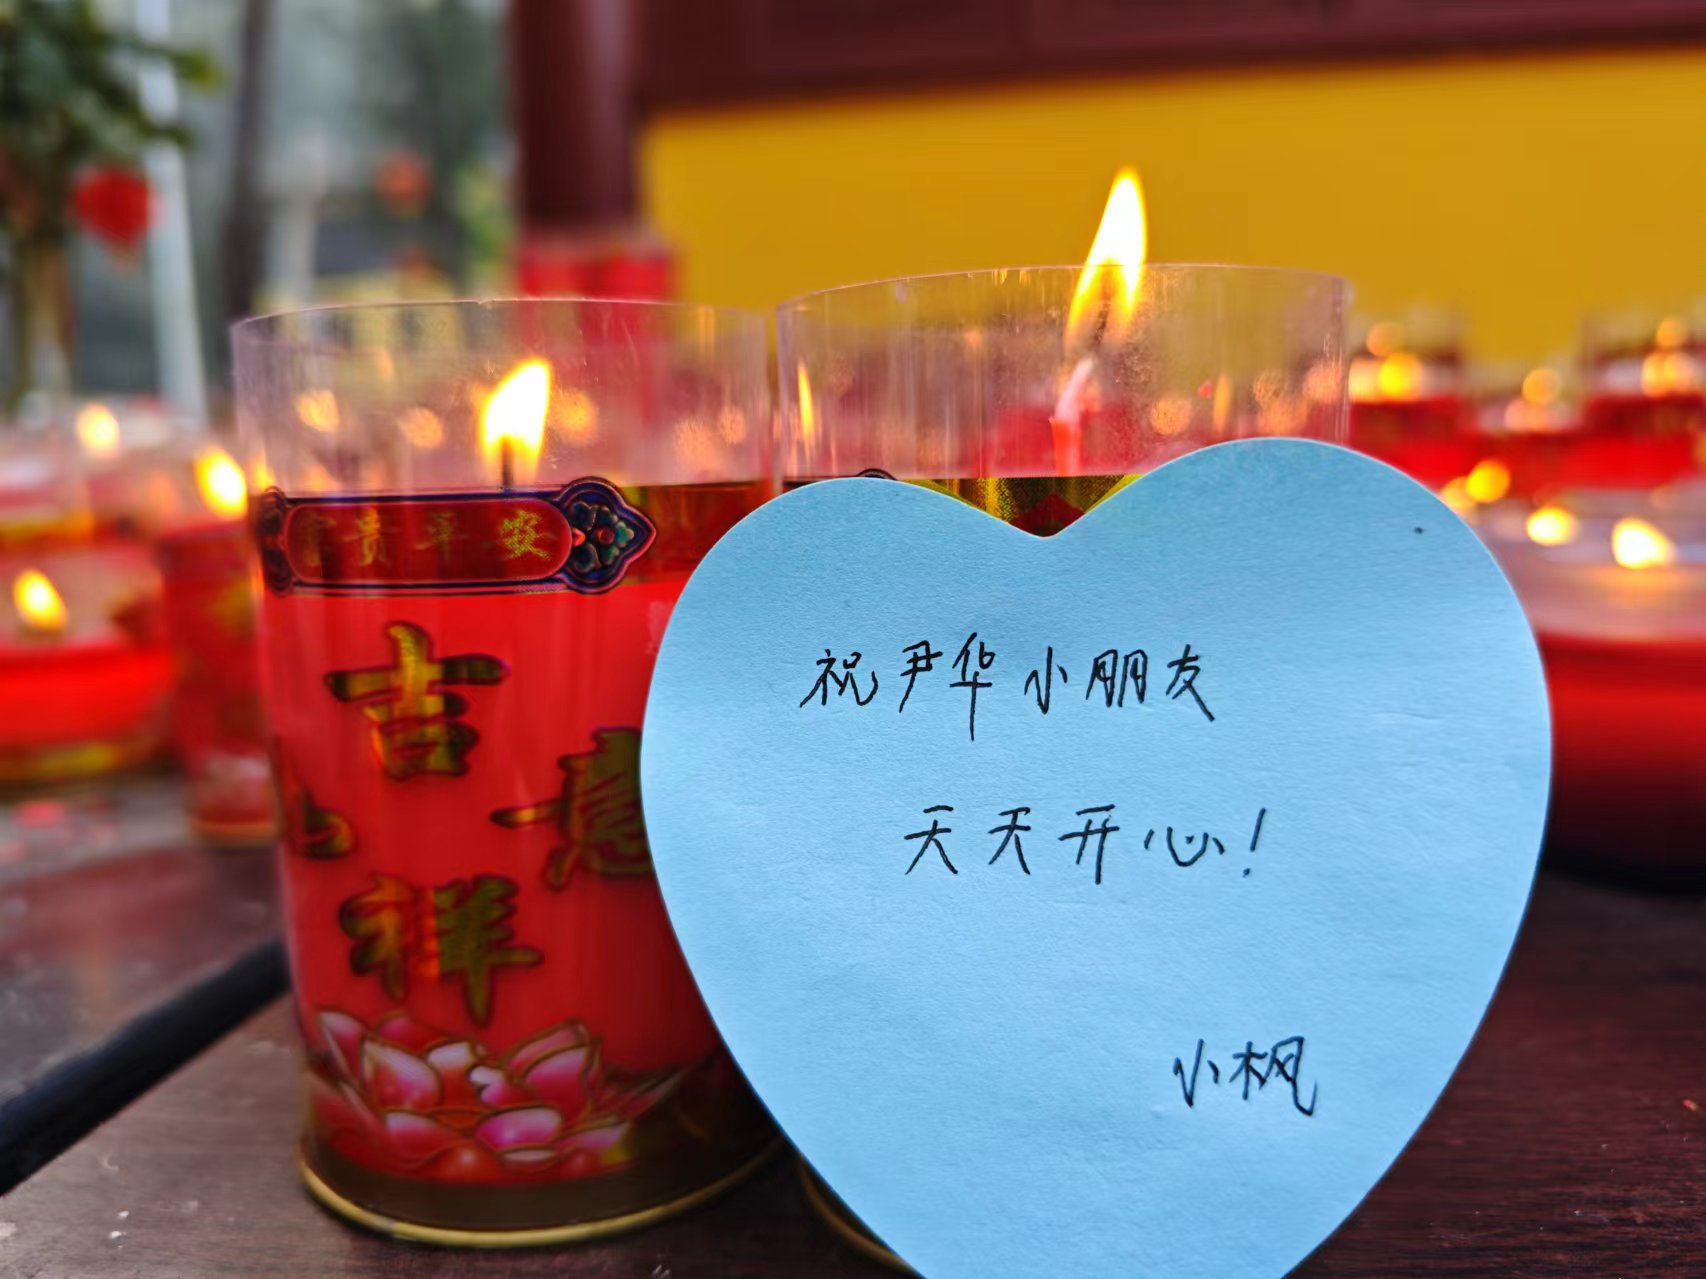 富贵平安
吉
祥
意
祝尹华小朋友
天天开心！
小枫